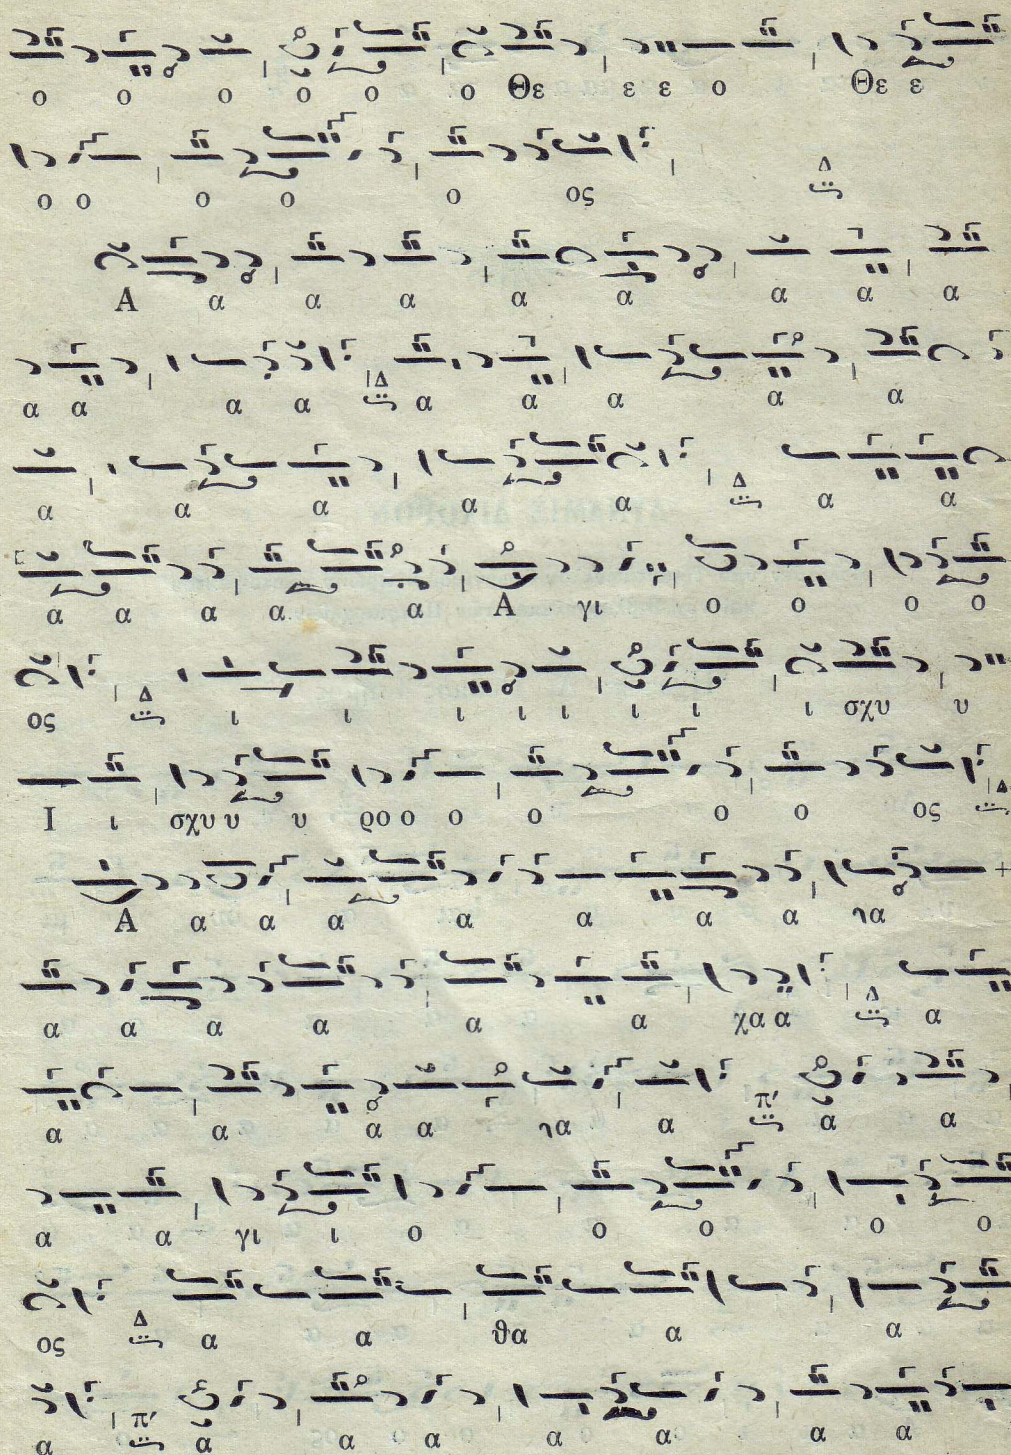 ο ο ο ο ο ο Θε ε ε ο Θε ε
ο ο ο ο ο ος Δ
Α α α α α α α α α
α α α α Δ α α α α α
α α α α α Δ α α
α α α α α Α γι ο ο ο ο
ος Δ ι ι ι ι ι ι ι ι σχυ υ
Ι ι σχυ υ υ ρο ο ο ο ο ο ος Δ
Α α α α α α α α γα
α α α α α α χα α Δ α
α α α α γα α π' α α
α α γι ι ο ο ο ο ο
ος Δ α α θα α α
α π' α α α α α α α